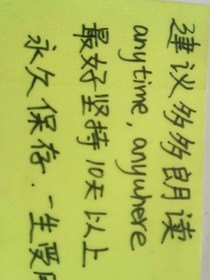 建议多多朗读
anytime, anywhere
最好坚持10天以上
永久保存.一生受